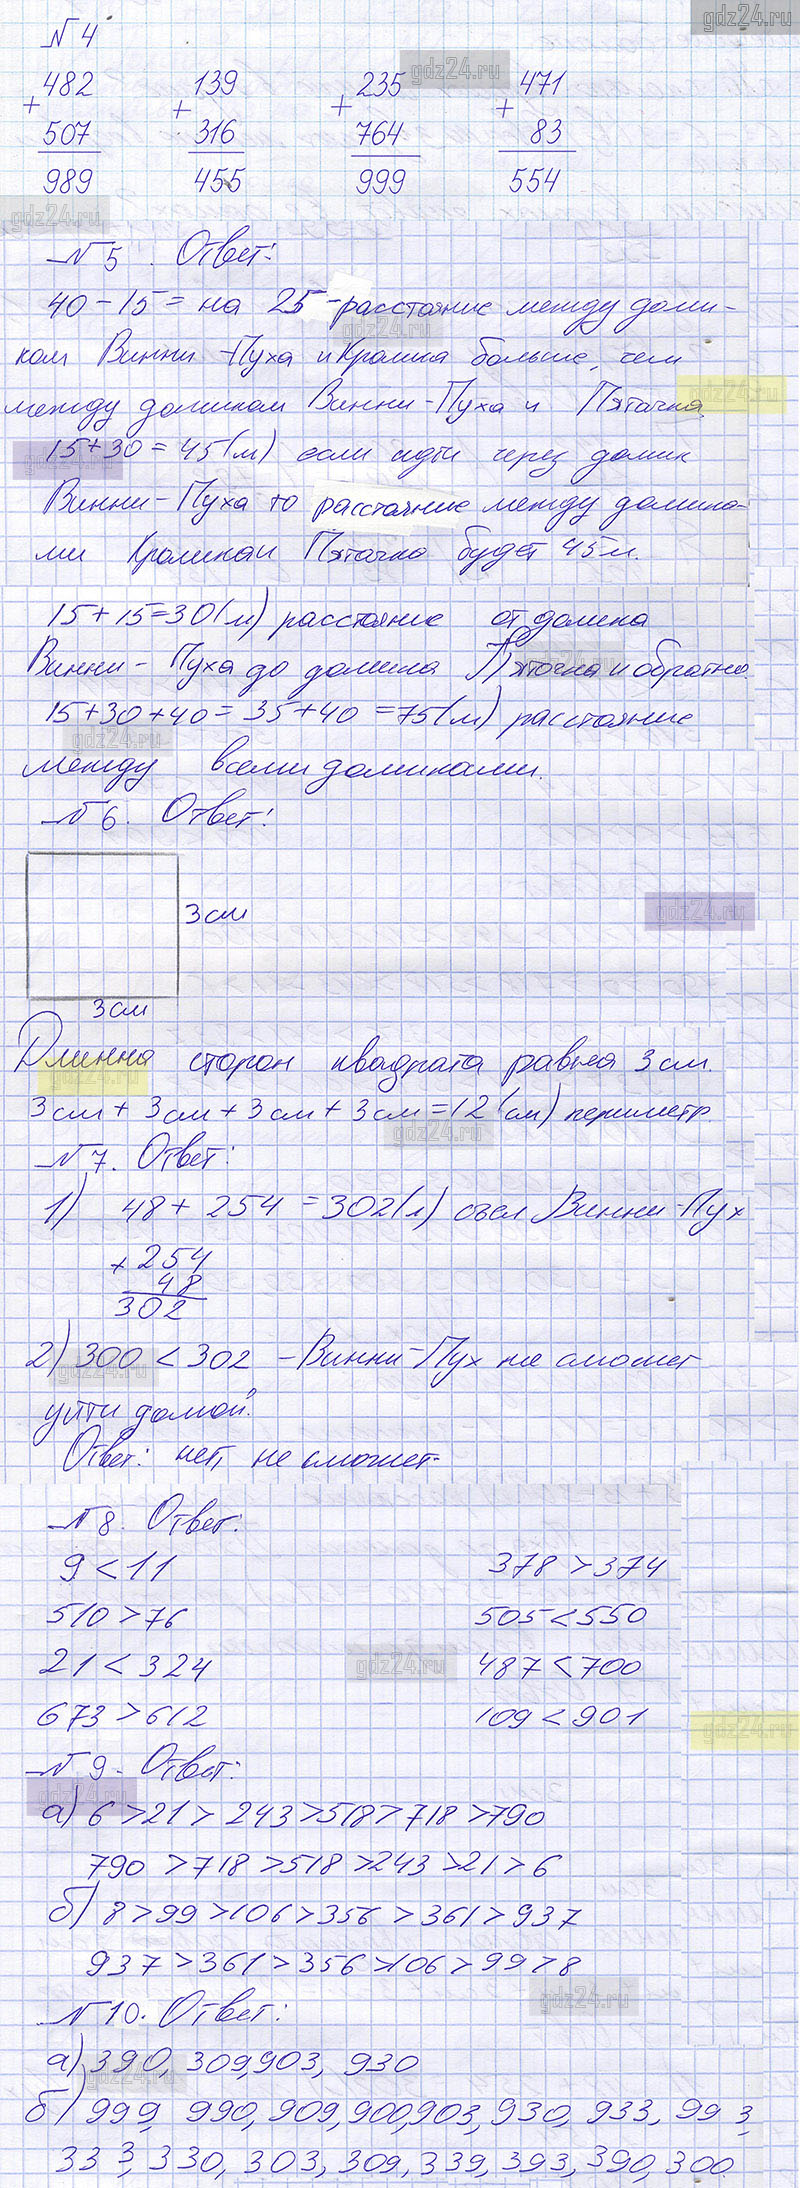 gdz24.ru
№4
482 139 235 471
+ + + +
507 316 764 83
gdz24.ru
989 455 999 554
gdz24.ru
№5. Ответ:
40-15= на 25-расстояние между доми-
gdz24.ru
ком Винни-Пуха и Кролика больше, чем
между домиком Винни-Пуха и Пятачка.
gdz24.ru
15+30=45(м) если идти через домик
gdz24.ru
Винни-Пуха то расстояние между домика-
ми Кролика и Пятачка будет 45м.
15+15=30(м) расстояние от домика
Винни-Пуха до домика Пятачка и обратно.
gdz24.ru
15+30+40=35+40=75(м) расстояние
gdz24.ru
между всеми домиками.
№6. Ответ:
3см
gdz24.ru
3см
Длинна сторон квадрата равна 3см.
gdz24.ru
3см+3см+3см+3см=12(см) периметр
gdz24.ru
№7. Ответ:
1) 48+254=302(л) съел Винни-Пух
+254
48
302
2) 300<302 -Винни-Пух не сможет
gdz24.ru
уйти домой.
Ответ: нет, не сможет.
№8. Ответ:
9<11 378>374
510>76 505<550
21<324 487<700
gdz24.ru
673>612 109<901
gdz24.ru
№9. Ответ:
gdz24.ru
а) 6>21>243>518>718>790
790>718>518>243>21>6
б) 8>99>106>356>361>937
937>361>356>106>99>8
gdz24.ru
№10. Ответ:
а) 390, 309, 903, 930
gdz24.ru
б) 999, 990, 909, 900, 903, 930, 933, 993,
333, 330, 303, 309, 339, 393, 390, 300.